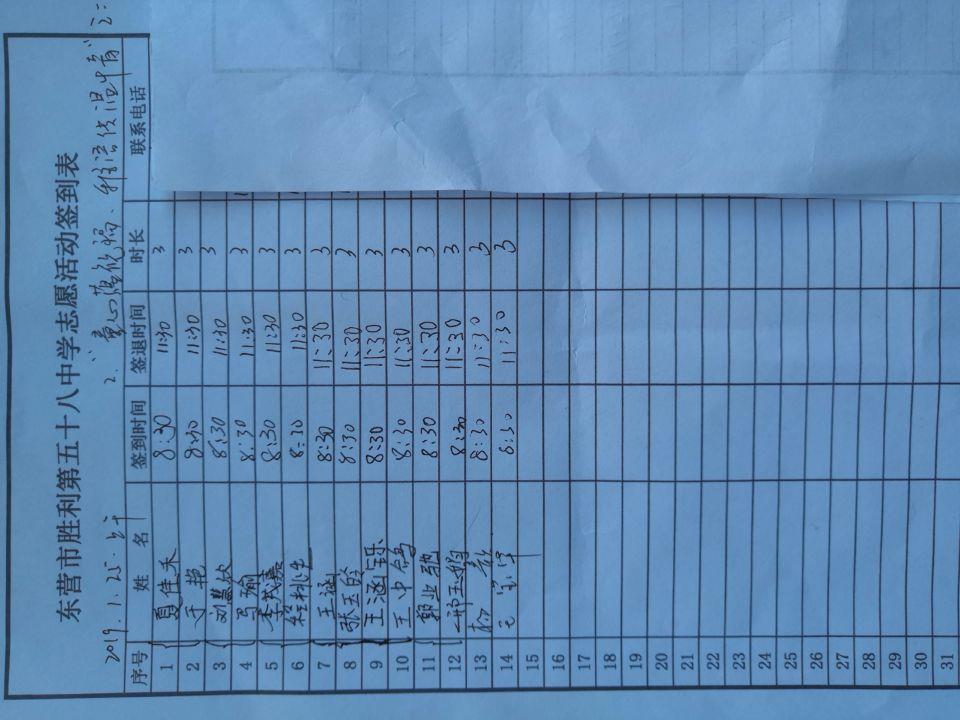 东营市胜利第五十八中学志愿活动签到表
2019.1.25.上午 2.“童心落幌祸、雅言传温情” 2=
序号 姓 名 签到时间 签退时间 时长 联系电话
1 夏佳禾 8:30 11:30 3
2 于艳 8:30 11:30 3
3 刘慧欣 8:30 11:30 3
4 马瑜 8:30 11:30 3
5 李茂嘉 8:30 11:30 3
6 程桃先 8:30 11:30 3
7 王涵 8:30 11:30 3
8 张玉龄 8:30 11:30 3
9 王涵铄 8:30 11:30 3
10 王中鸽 8:30 11:30 3
11 郭业驰 8:30 11:30 3
12 邢玉鹤 8:30 11:30 3
13 8:30 11:30 3
14 8:30 11:30 3
15
16
17
18
19
20
21
22
23
24
25
26
27
28
29
30
31